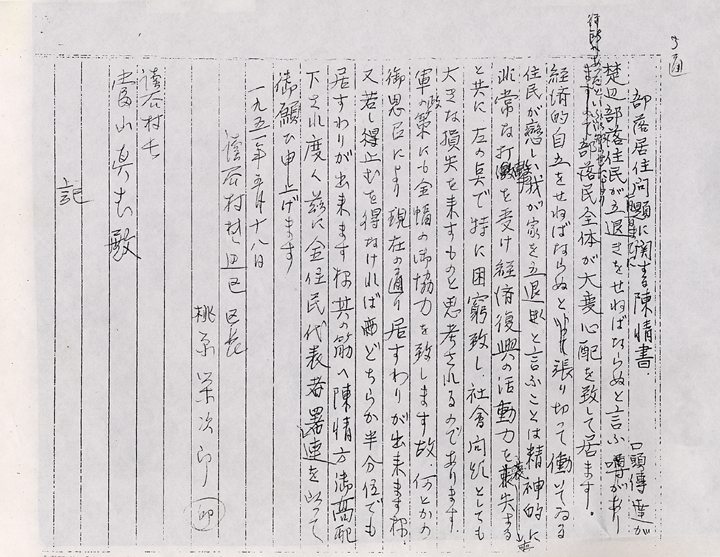 3通
部落居住問題に関する陳情書
楚辺部落住民が立退きをせねばならぬと言ふ噂があり
口頭傳達が
部落民全体が大変心配を致して居ます。
経済的自立をせねばならぬと張り切って働いてゐる
住民が戀しい我が家を立退けと言ふことは精神的に
非常な打撃を受け経済復興の活動力を喪失する
と共に左の点で特に困窮致し社會問題としても
大きな損失を来すものと思考されるのであります。
軍の政策にも全幅の御協力を致します故、何とかの
御思召により現在の通り居すわりが出来ます様
又若し得止むを得なければ西どちらか半分位でも
居すわりが出来ます様其の筋へ陳情方御高配
下され度く茲に全住民代表者署連を以って
御願ひ申上げます
一九五一年五月十八日
讀谷村楚辺区長
桃原栄次郎 印
讀谷村長
當山真志殿
記